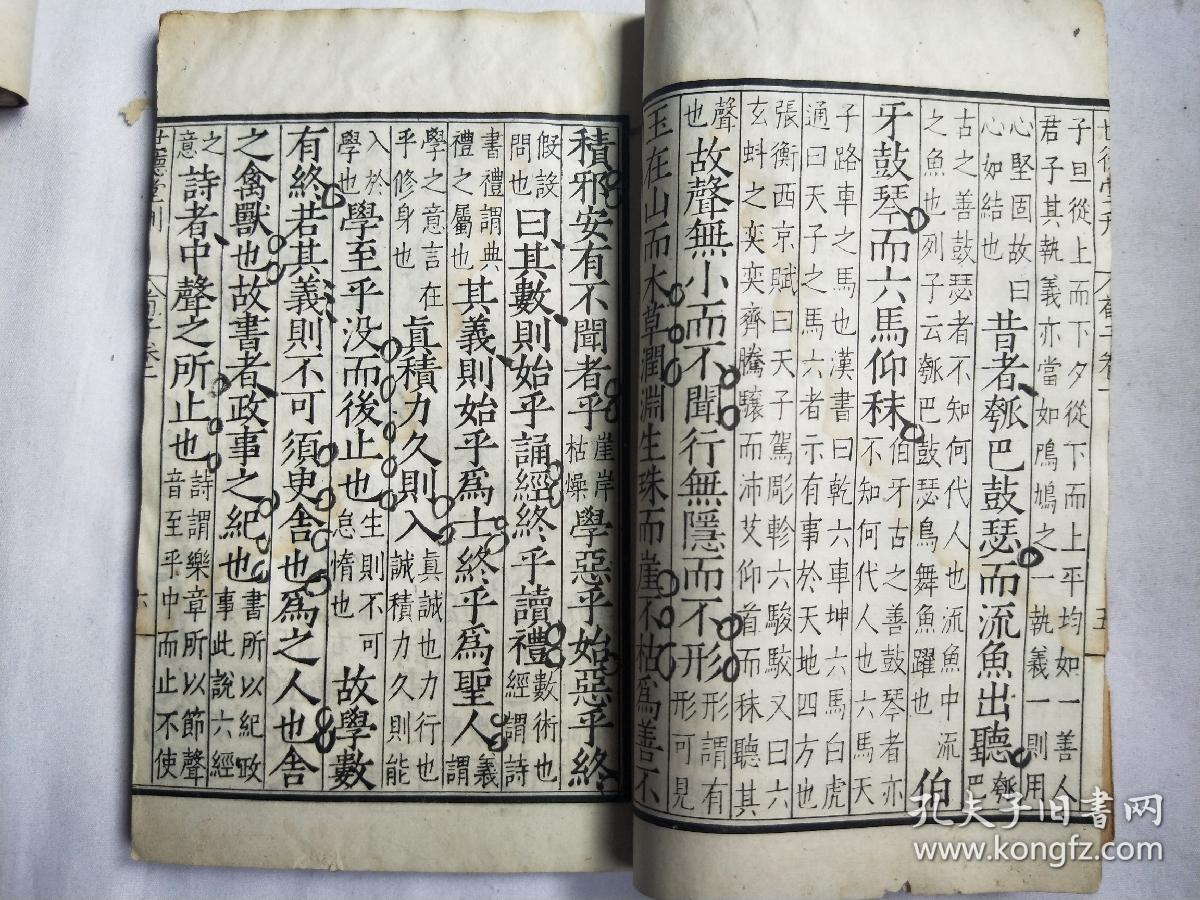 世德堂刊 荀子卷一 五
子旦從上而下夕從下而上平均如一善人
君子其執義亦當如鳲鳩之一執義一則用
心堅固故曰心如結也昔者瓠巴鼓瑟而流魚出聽瓠巴
古之善鼓瑟者不知何代人也流魚中流之魚也列子云瓠巴鼓瑟鳥舞魚躍也伯
牙鼓琴而六馬仰秣伯牙古之善鼓琴者亦不知何代人也六馬天
子路車之馬也漢書曰乾六車坤六馬白虎
通曰天子之馬六者示有事於天地四方也
張衡西京賦曰天子駕彫軫六駿駮又曰六
玄蚪之奕奕齊騰驤而沛艾仰首而秣聽其
聲也故聲無小而不聞行無隱而不形形謂有形可見
玉在山而木草潤淵生珠而崖不枯爲善不
積邪安有不聞者乎崖岸枯燥學惡乎始惡乎終
假設問也曰其數則始乎誦經終乎讀禮數術也經謂詩
書禮謂典禮之屬也其義則始乎爲士終乎爲聖人義謂
學之意言在乎修身也眞積力久則入眞誠也力行也誠積力久則能
入於學也學至乎没而後止也生則不可怠惰也故學數
有終若其義則不可須臾舍也爲之人也舍
之禽獸也故書者政事之紀也書所以紀政事此說六經
之意詩者中聲之所止也詩謂樂章所以節聲音至乎中而止不使
世德堂刊 荀子卷一 六
孔夫子旧书网
www.kongfz.com